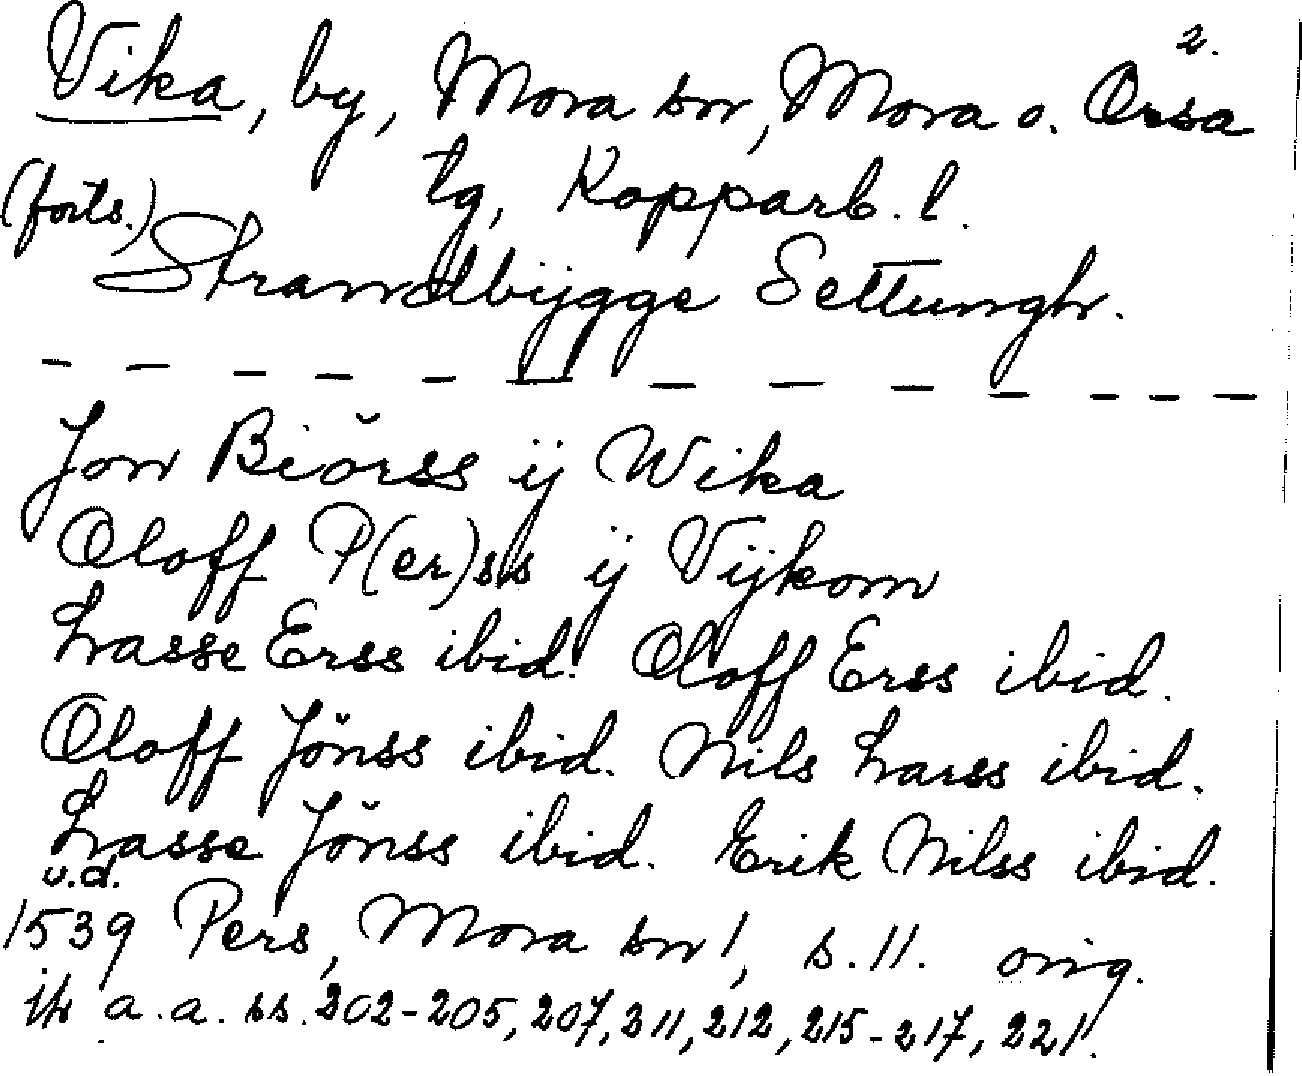 2.
Vika, by, Mora sn, Mora o. Orsa
(forts.) tg, Kopparb. l.
Strandbijgge Settungh.
Jon Biörss ij Wika
Oloff P(er)ss ij Vijkom
Lasse Erss ibid. Oloff Erss ibid.
Oloff Jönss ibid. Nils Larss ibid.
Lasse Jönss ibid. Erik Nilss ibid.
u.d.
1539 Pers, Mora sn 1, s. 11. orig.
jfr a.a. ss. 202-205, 207, 211, 212, 215-217, 221.